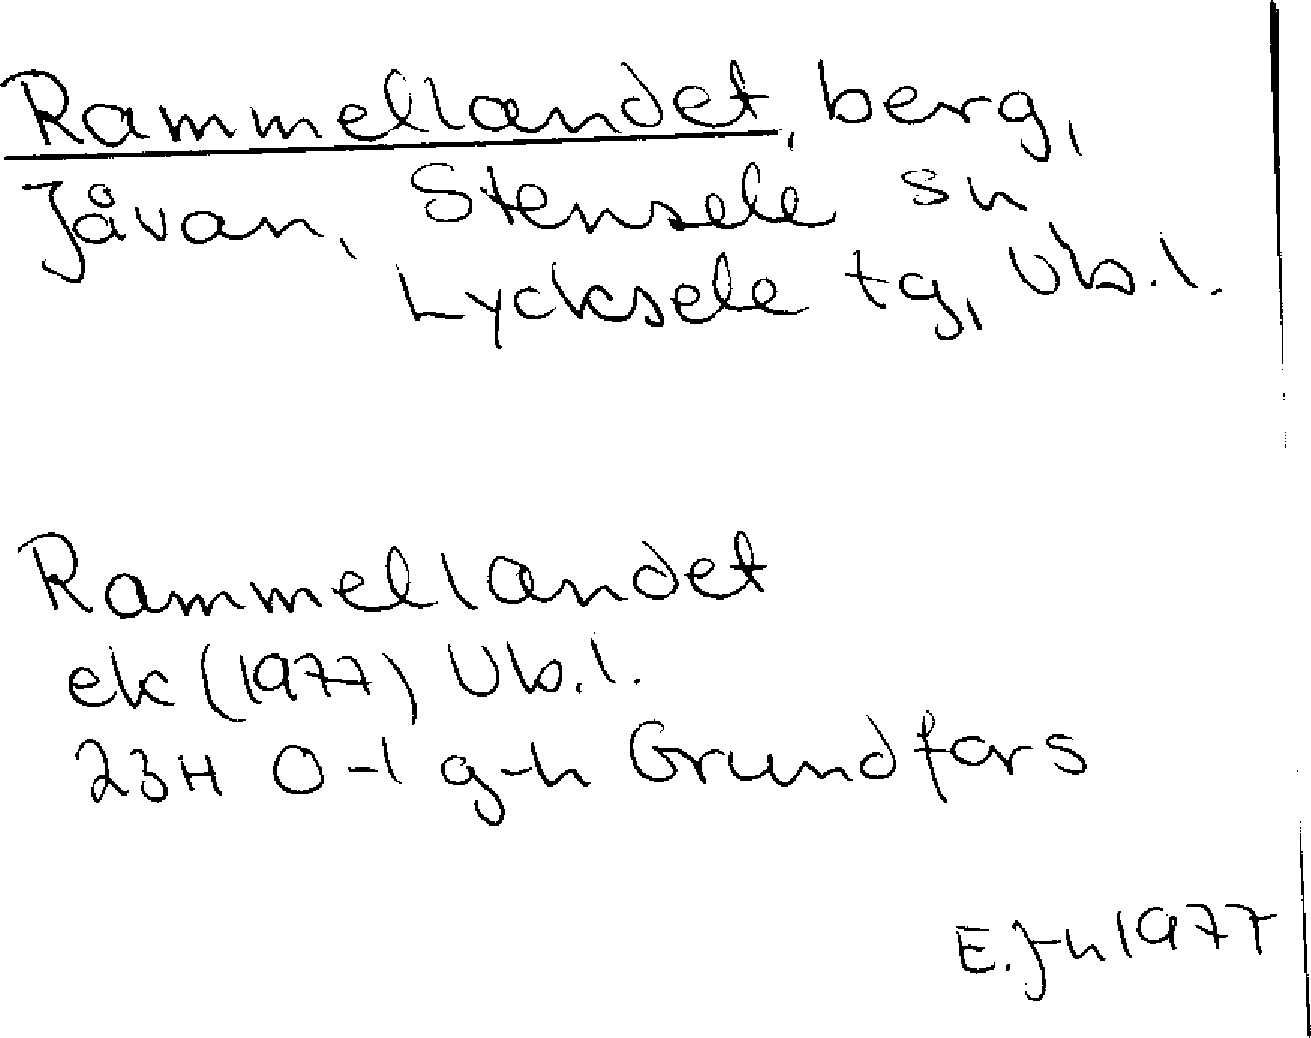 Rammellandet, berg,
Jåvan, Stensele sn
Lycksele tg, Vb.l.
Rammellandet
ek (1977) Vb.l.
23H 0-1 g-h Grundfors
E.J-n 1977